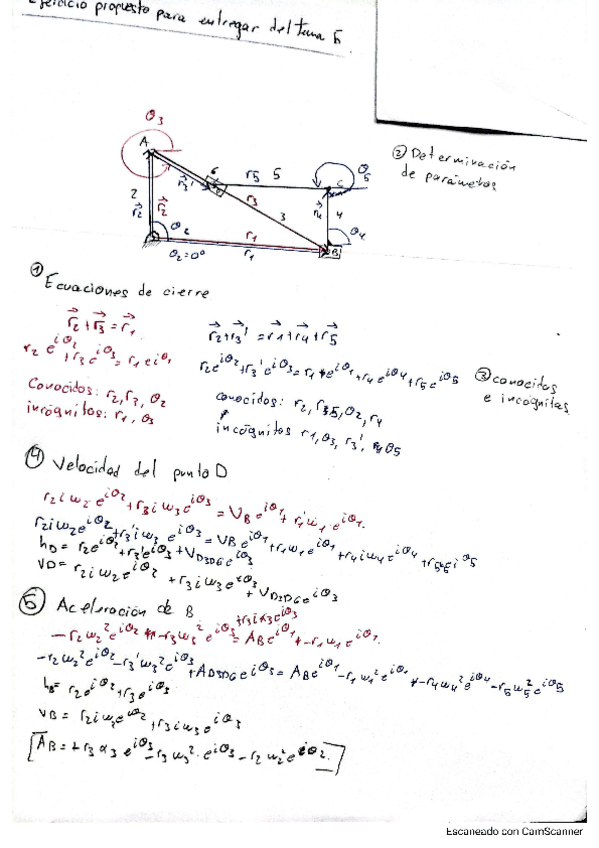 Ejercicio propuesto para entregar del tema 5
θ3
A
6
r5
5
C
θ5
② Determinación
de parámetros
2
r2
r2
r3'
r3
3
r4
4
θ2
r1
θ4
θ2=0°
r1
B
① Ecuaciones de cierre
r2+r3=r1
r2+r3'=r1+r4+r5
r2 e^iθ2+r3 e^iθ3=r1 e^iθ1
r2e^iθ2+r3'e^iθ3=r1*e^iθ1+r4e^iθ4+r5e^iθ5
③ conocidos
e incógnitas
Conocidos: r2, r3, θ2
incógnitas: r1, θ3
conocidos: r2, r3, θ2, r4
incógnitas r1, θ3, r3', θ5
④ Velocidad del punto D
r2iω2·e^iθ2+r3iω3e^iθ3=VBe^iθ1+r1iω1·e^iθ1.
r2iω2e^iθ2+r3'iω3e^iθ3=VBe^iθ1+r1ω1e^iθ1+r4iω4e^iθ4
hD=r2e^iθ2+r3'e^iθ3
VD=r2iω2e^iθ2+r3iω3e^iθ3+VD3D6e^iθ3
⑤ Aceleración de B
+r3iα3e^iθ3
-r2ω2²e^iθ2-r3ω3²e^iθ3=ABe^iθ1-r1ω1e^iθ1.
-r2ω2²e^iθ2-r3'ω3²e^iθ3+AD3D6e^iθ3=ABe^iθ1-r1ω1²e^iθ1-r4ω4²e^iθ4-r5ω5²e^iθ5
hB=r2e^iθ2+r3e^iθ3
VB=r2iω2e^iθ2+r3iω3e^iθ3
AB=+r3α3e^iθ3-r3ω3²·e^iθ3-r2ω2²e^iθ2.
Escaneado con CamScanner